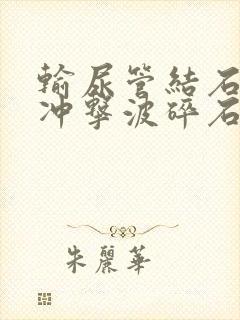 輸尿管結石
冲擊波碎石
朱麗華